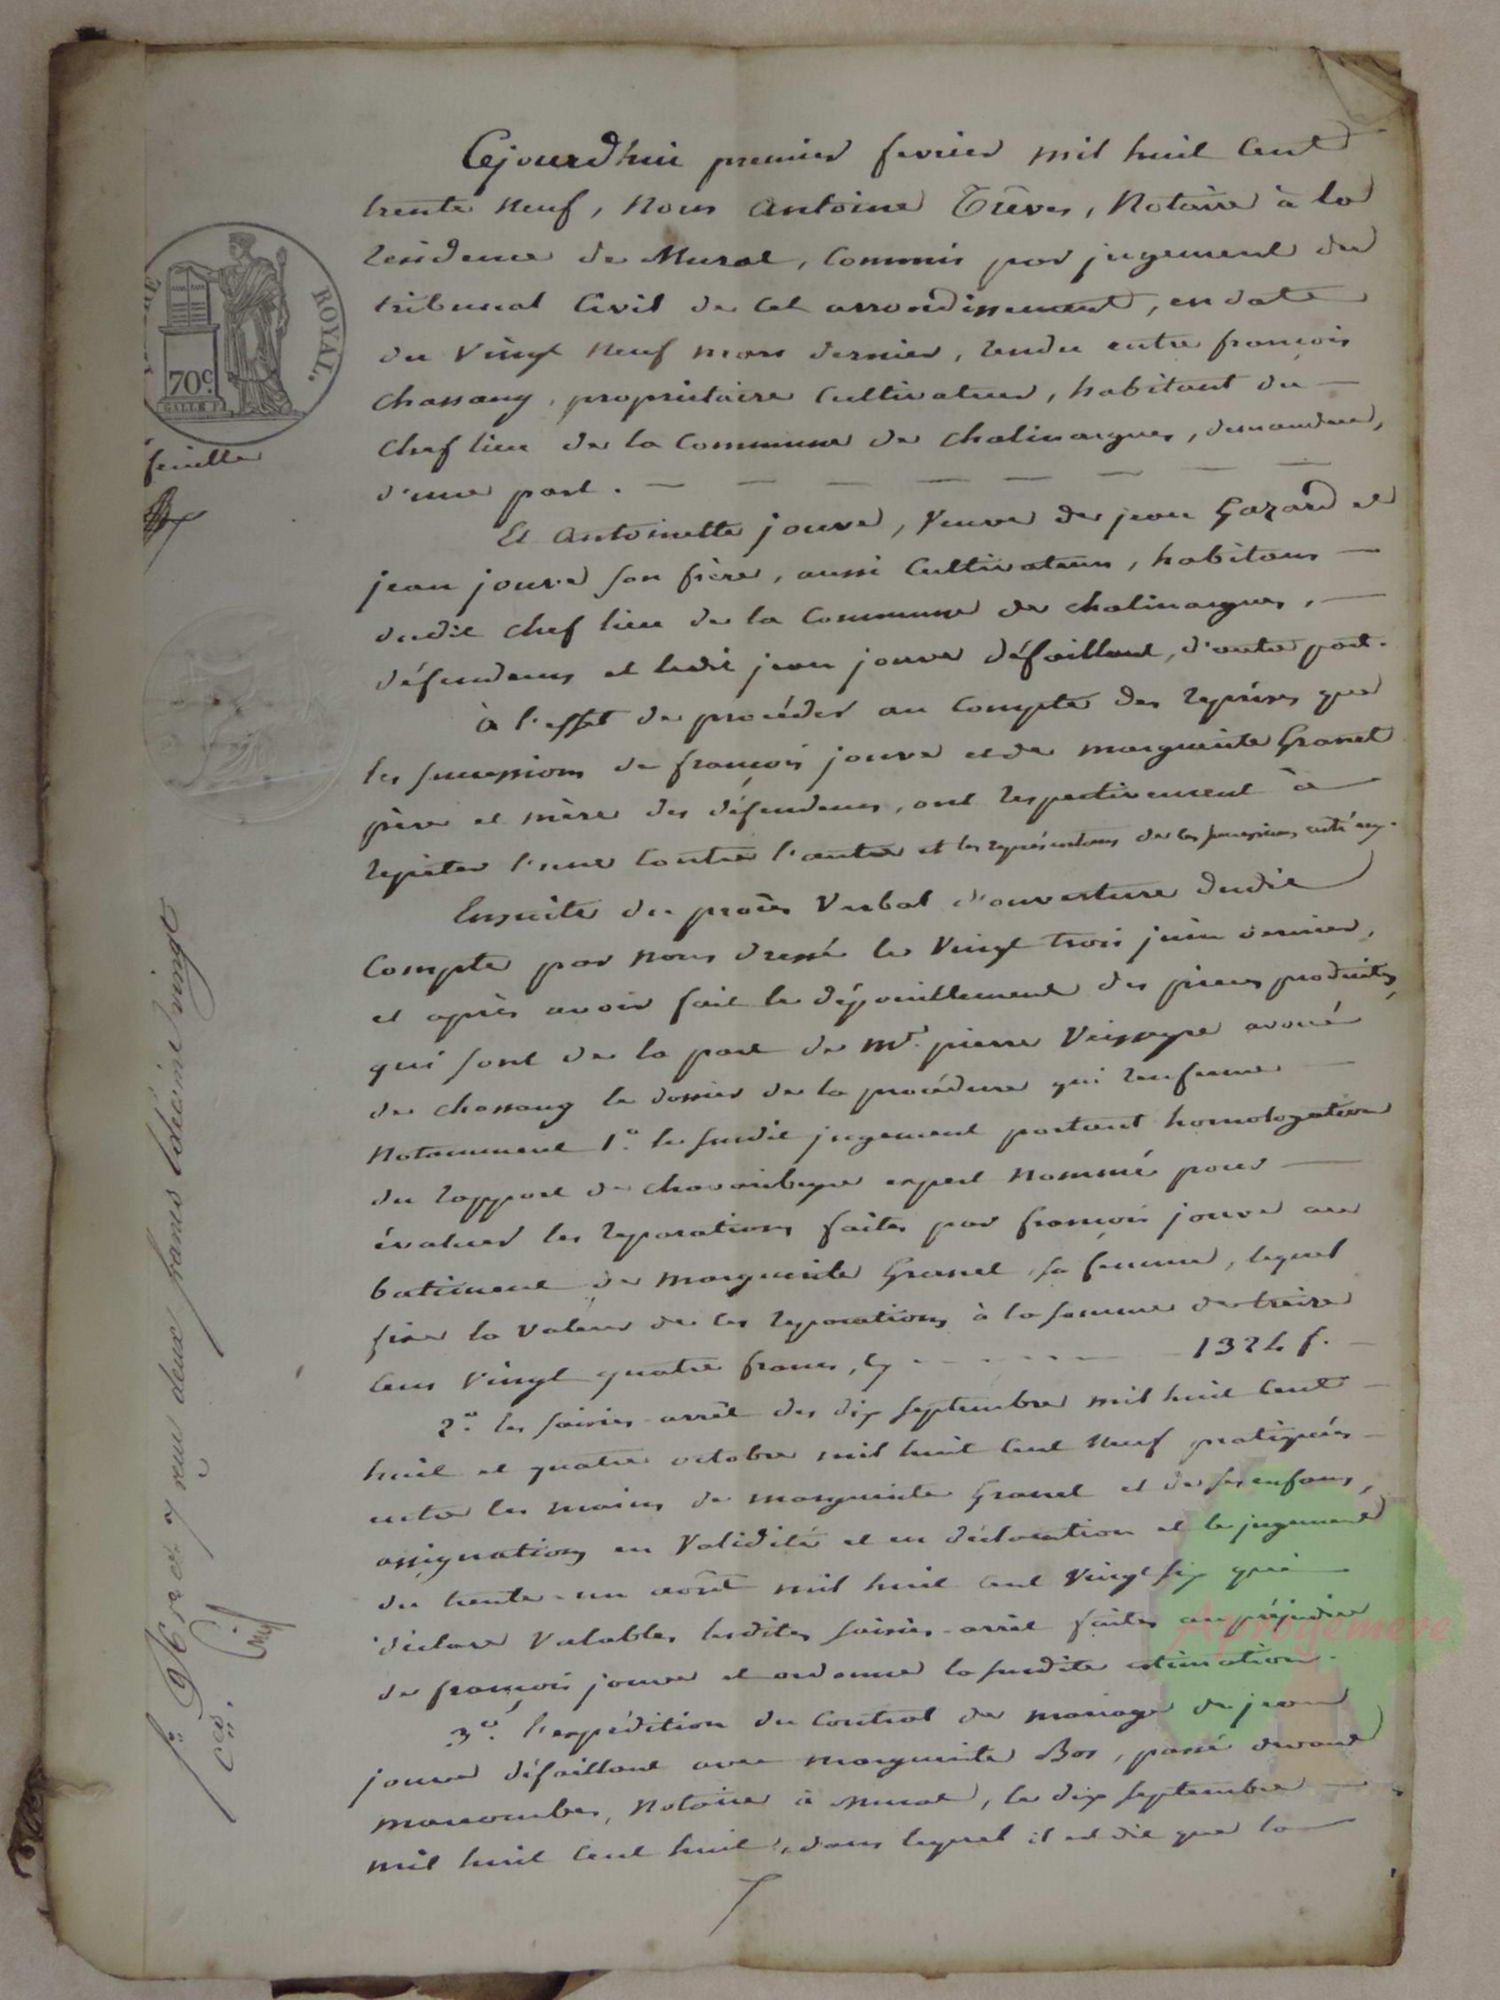 Cejourd'hui premier fevrier mil huit cent
trente neuf, nous Antoine Trèves, Notaire à la
résidence de Murat, commis par jugement du
tribunal Civil de cet arrondissement, en date
du vingt neuf mars dernier, rendu entre françois
chassang, propriétaire cultivateur, habitant du
chef lieu de la commune de chalinargues, demandeur,
d'une part.
Et antoinette jouve, veuve de jean Gazard et
jean jouve son frère, aussi cultivateurs, habitans
dudit chef lieu de la commune de chalinargues,
défendeurs et ledit jean jouve défaillant, d'autre part.
à l'effet de procéder au compte des reprises que
les successions de françois jouve et de marguerite Granet
père et mère des défendeurs, ont respectivement à
répéter l'une contre l'autre et les représentans de ces successions entr'eux.
Ensuite du procès verbal d'ouverture dudit
compte par nous dressé le vingt trois juin dernier,
et après avoir fait le dépouillement des pièces produites,
qui sont de la part de Me. pierre Veisseyre avoué
de chassang le dossier de la procédure qui renferme
notamment 1°. le susdit jugement portant homologation
du rapport de expert nommé pour
évaluer les réparations faites par françois jouve au
batiment de marguerite Granet sa femme, lequel
fixe la valeur de ces réparations à la somme de treize
cens vingt quatre francs, cy 1324 f.
2°. les saisies-arrêt des dix septembre mil huit cent
huit et quatre octobre mil huit cent neuf pratiquées
entre les mains de marguerite Granet et de ses enfans,
assignations en validité et en déclaration et le jugement
du trente-un août mil huit cent vingt six qui
déclare valables lesdites saisies-arrêt faites au préjudice
de françois jouve et ordonne la susdite estimation.
3°. l'expédition du contrat de mariage de jean
jouve défaillant avec marguerite Bos, passé devant
notaire à murat, le dix septembre
mil huit cent huit, dans lequel il est dit que la
ROYAL.
70c.
feuille
reçu deux francs décime vingt
cinq
ces.
Aprogemere